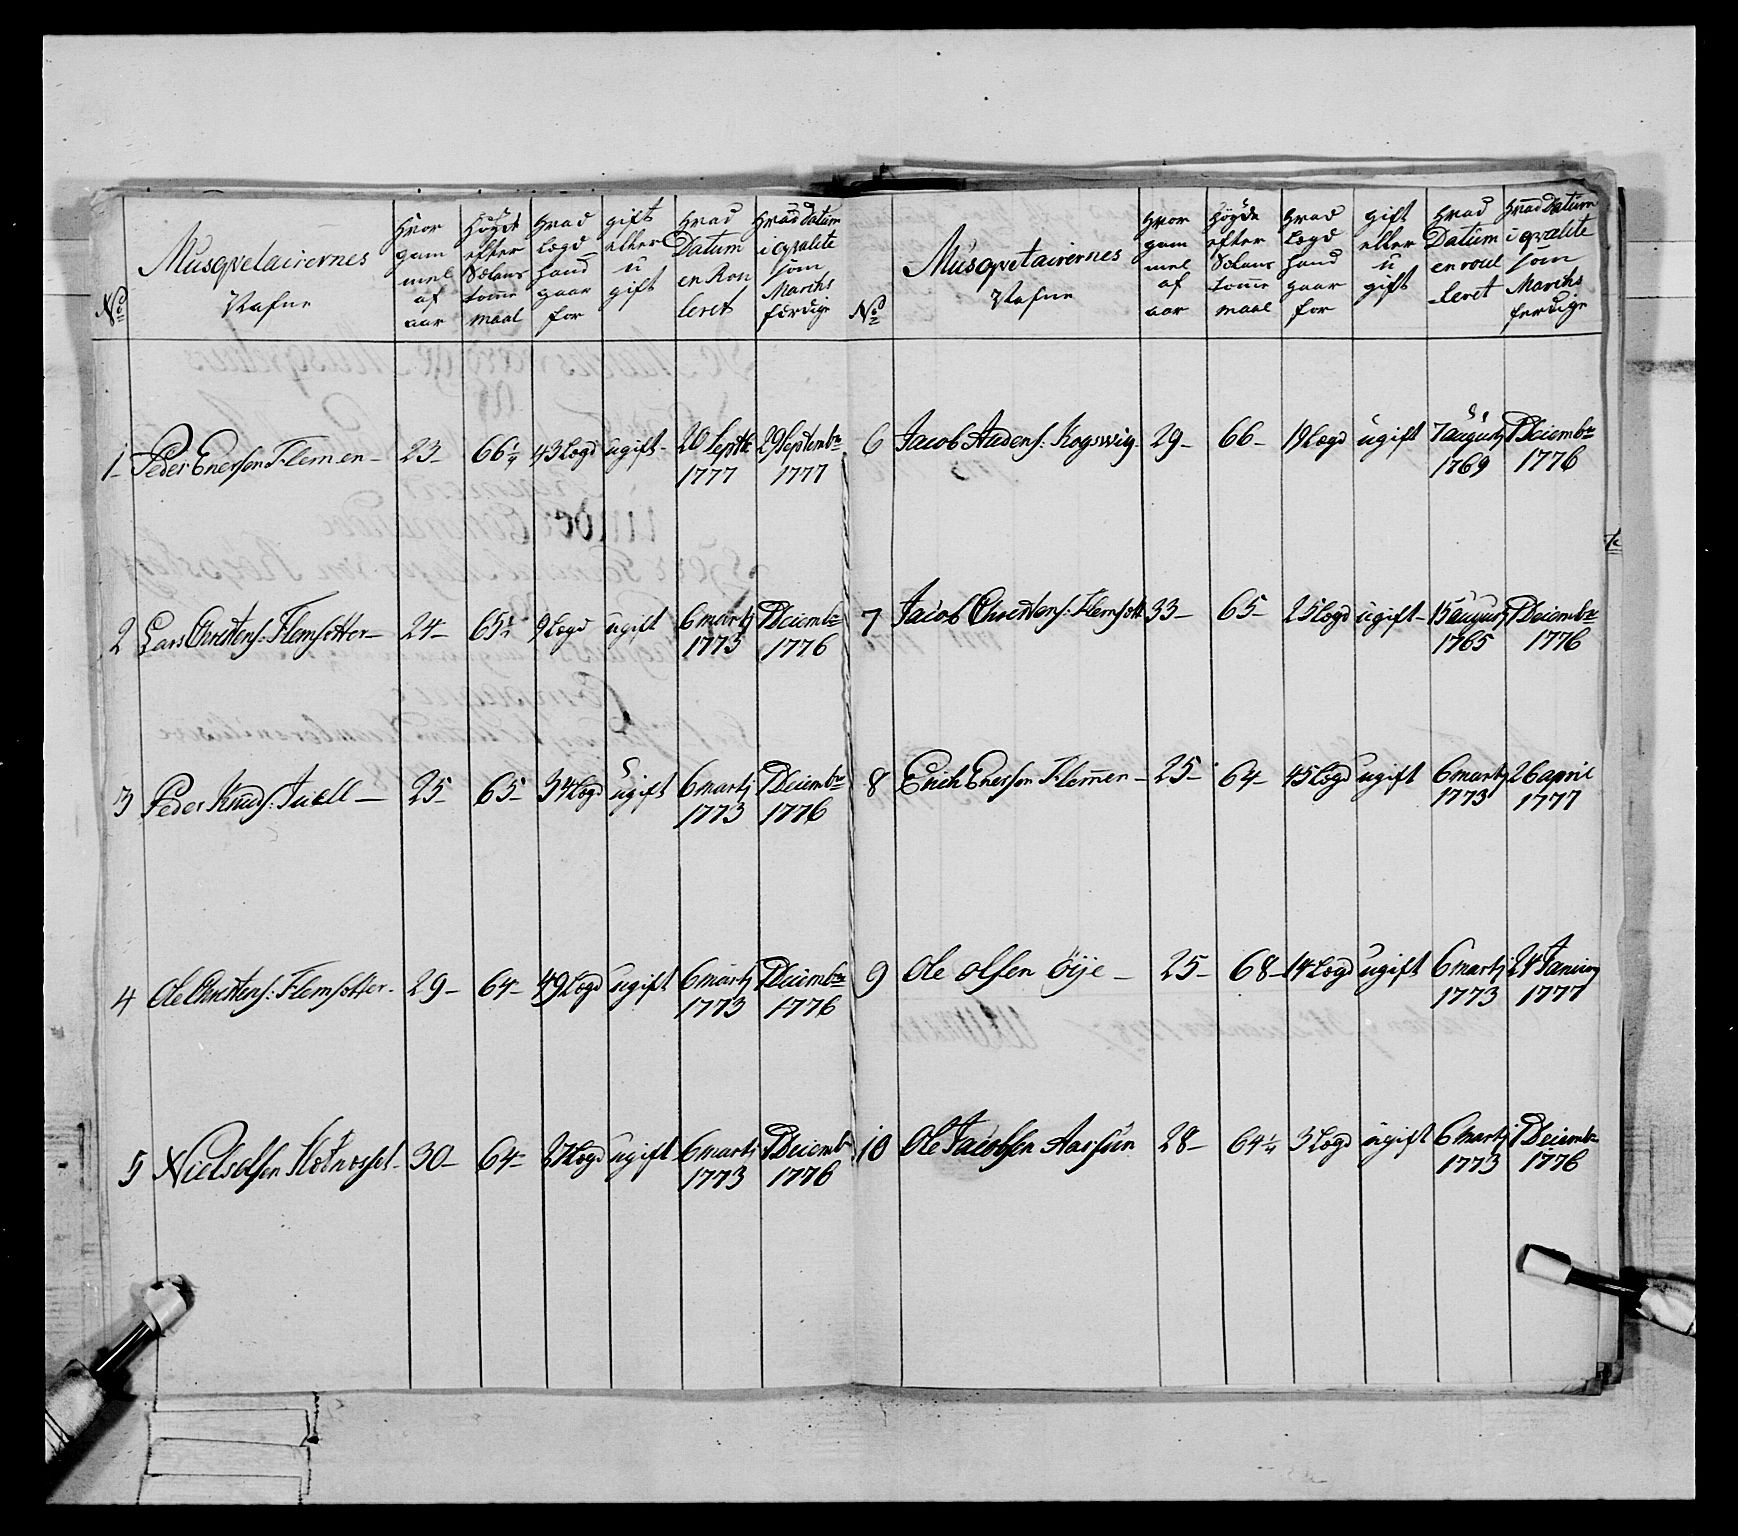 No
Musqvetairernes
Nafne
hvor
gam
mel
af
aar
høyde
efter
Sælans
tomme
maal
hvad
Lægd
hand
gaar
for
gift
eller
u
gift
hvad
Datum
en Rou
leret
hvad Datum
i qvalite
som
Marchs
færdige
1 Peder Enersen Flemen 23 66 1/4 43 Lægd ugift 20 Septbr 1777 29 Septembr 1777
2 Lars Christens: Flemsetter 24 65 1/2 9 Lægd ugift 6 martj 1773 7 Decembr 1776
3 Peder Knuds: Juell 25 65 34 Lægd ugift 6 martj 1773 7 Decembr 1776
4 Ole Christens: Flemsetter 29 64 49 Lægd ugift 6 martj 1773 7 Decembr 1776
5 Niels olsen 30 64 27 Lægd ugift 6 martj 1773 7 Decembr 1776
No
Musqvetairernes
Nafne
hvor
gam
mel
af
aar
høyde
efter
Sælans
tomme
maal
hvad
Lægd
hand
gaar
for
gift
eller
u
gift
hvad
Datum
en roul
leret
hvad Datum
i qvalite
som
Marchs
ferdige
6 Jacob Audens: Kogswig 29 66 19 Lægd ugift 7 augustj 1769 7 Decembr 1776
7 Jacob Christens: Flemsett 33 65 25 Lægd ugift 15 augustj 1765 7 Decembr 1776
8 Erich Enersen Flemen 25 64 45 Lægd ugift 6 martj 1773 26 april 1777
9 Ole olsen Øije 25 68 14 Lægd ugift 6 martj 1773 24 Januarj 1777
10 Ole Jacobsen Aarsun 28 64 1/4 3 Lægd ugift 6 Martj 1773 7 Decembr 1776